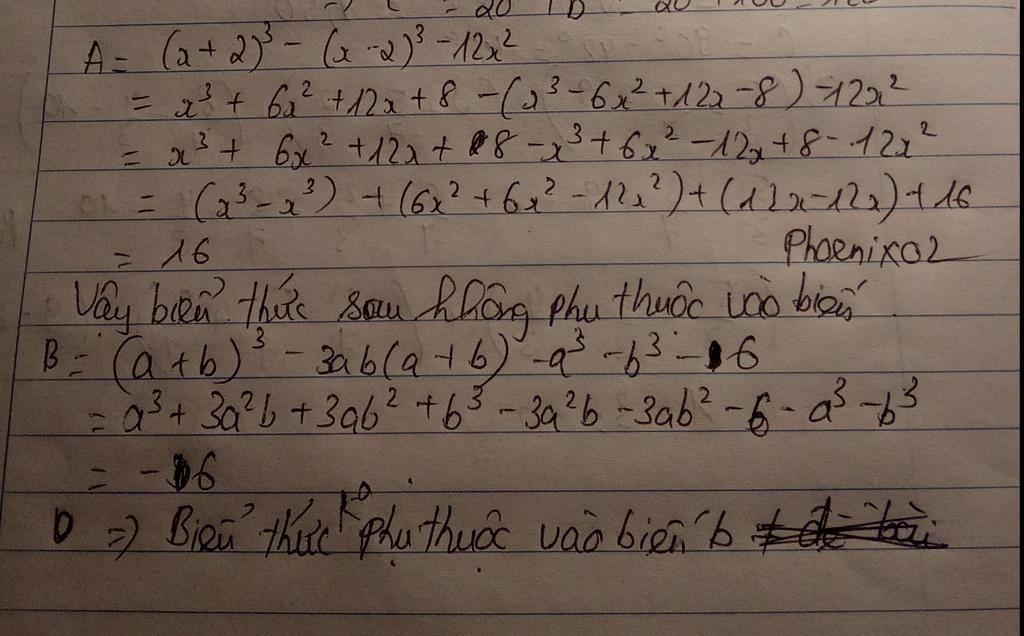 A = (x + 2)³ - (x - 2)³ - 12x²
= x³ + 6x² + 12x + 8 - (x³ - 6x² + 12x - 8) - 12x²
= x³ + 6x² + 12x + 8 - x³ + 6x² - 12x + 8 - 12x²
= (x³ - x³) + (6x² + 6x² - 12x²) + (12x - 12x) + 16
= 16 Phoenix02
Vậy biểu thức sau không phụ thuộc vào biến
B = (a + b)³ - 3ab(a + b) - a³ - b³ - 6
= a³ + 3a²b + 3ab² + b³ - 3a²b - 3ab² - 6 - a³ - b³
= - 6
⇒ Biểu thức k⁰ phụ thuộc vào biến b